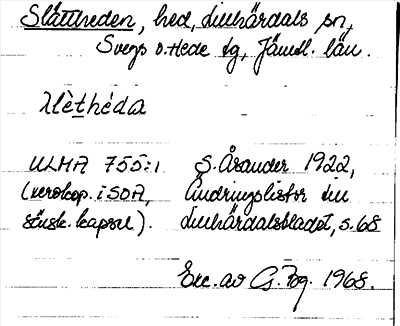 Slåttheden, hed, Linhärdals sn,
Svegs o. Hede tg, Jämtl. län.
ULMA 755:1 S. Åsander 1922,
(xerokop. i SOA, Ändringslistor till
särsk. kapsel). Linhärdalsbladet, s. 68
Exc. av G. Fog. 1968.